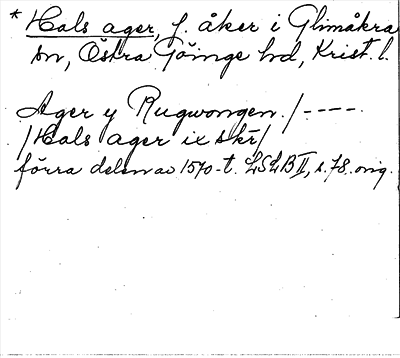 * Hals ager, f. åker i Glimåkra
sn, Östra Göinge hd, Krist. l.
Ager y Rugwongen. / - - - -
/ Hals ager ix skr /
förra delen av 1570-t. LSLB II, s. 78. orig.